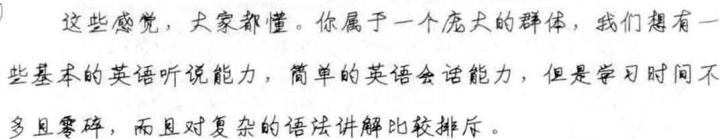 这些感觉，大家都懂。你属于一个庞大的群体，我们想有一
些基本的英语听说能力，简单的英语会话能力，但是学习时间不
多且零碎，而且对复杂的语法讲解比较排斥。